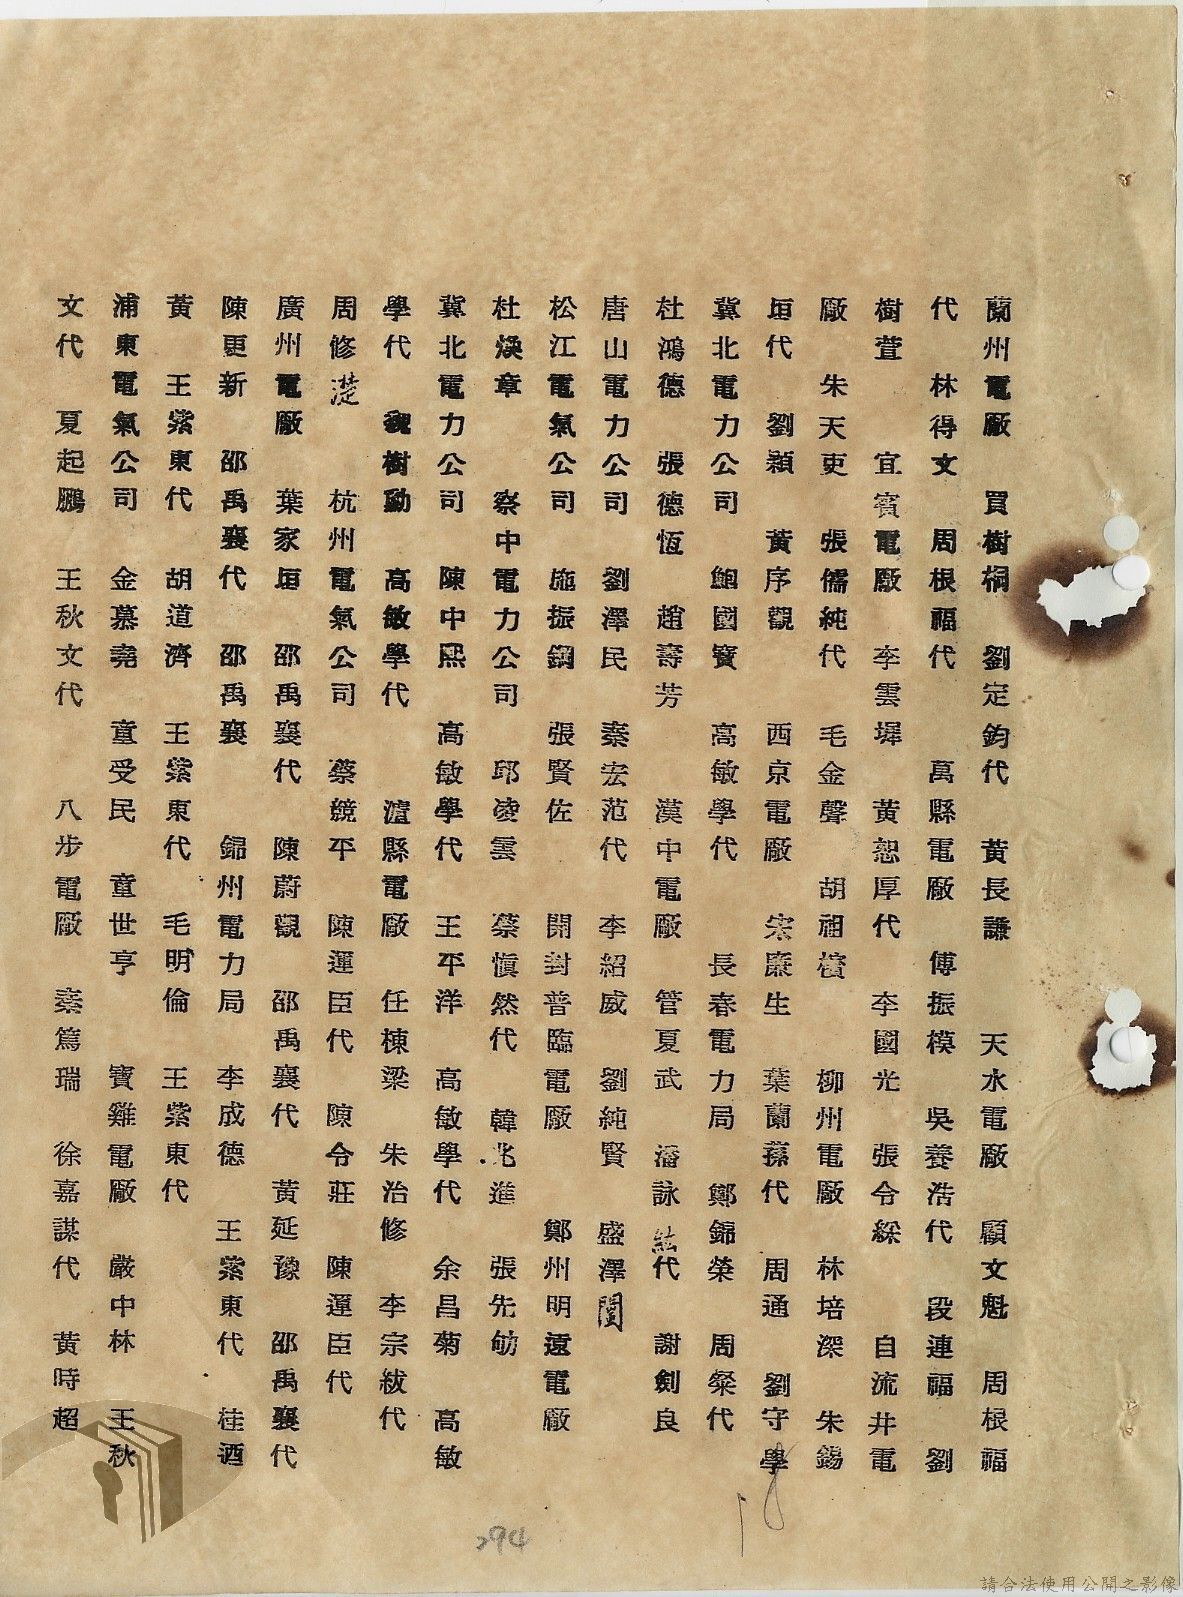 蘭州電廠　買樹桐　劉定鈞代　黃長謙　天水電廠　顧文魁　周根福
代　林得文　周根福代　萬縣電廠　傅振模　吳養浩代　段連福　劉
樹萱　宜賓電廠　李雲墀　黃恕厚代　李國光　張令綵　自流井電
廠　朱天吏　張儒純代　毛金聲　胡祖　柳州電廠　林培深　朱錫
垣代　劉穎　黃序觀　西京電廠　宋廉生　葉蘭蓀代　周通　劉守學
冀北電力公司　鮑國寶　高敏學代　長春電力局　鄭錦榮　周粲代
杜鴻德　張德恆　趙壽芳　漢中電廠　管夏武　潘詠代　謝劍良
唐山電力公司　劉澤民　秦宏范代　李紹威　劉純賢　盛澤閶
松江電氣公司　施振鋼　張賢佐　開封普臨電廠　鄭州明遠電廠
杜煥章　察中電力公司　邱凌雲　蔡愼然代　韓兆進　張先
冀北電力公司　陳中熙　高敏學代　王平洋　高敏學代　余昌菊　高敏
學代　魏樹勳　高敏學代　瀘縣電廠　任棟梁　朱治修　李宗紱代
周修漟　杭州電氣公司　蔡競平　陳運臣代　陳令莊　陳運臣代
廣州電廠　葉家垣　邵禹襄代　陳蔚觀　邵禹襄代　黃延豫　邵禹襄代
陳更新　邵禹襄代　邵禹襄　錦州電力局　李成德　王紫東代　桂迺
黃　王紫東代　胡道濟　王紫東代　毛明倫　王紫東代
浦東電氣公司　金慕堯　童受民　童世亨　寶雞電廠　嚴中林　王秋
文代　夏起鵬　王秋文代　八步電廠　秦篤瑞　徐嘉謀代　黃時超
294
請合法使用公開之影像